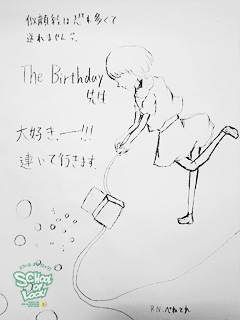 似顔絵は恐れ多くて
送れませんが、
The Birthday
先生
大好きーー!!!
連いて行きます。
SCHOOL
OF
LOCK!
P.N.ぺねてれ